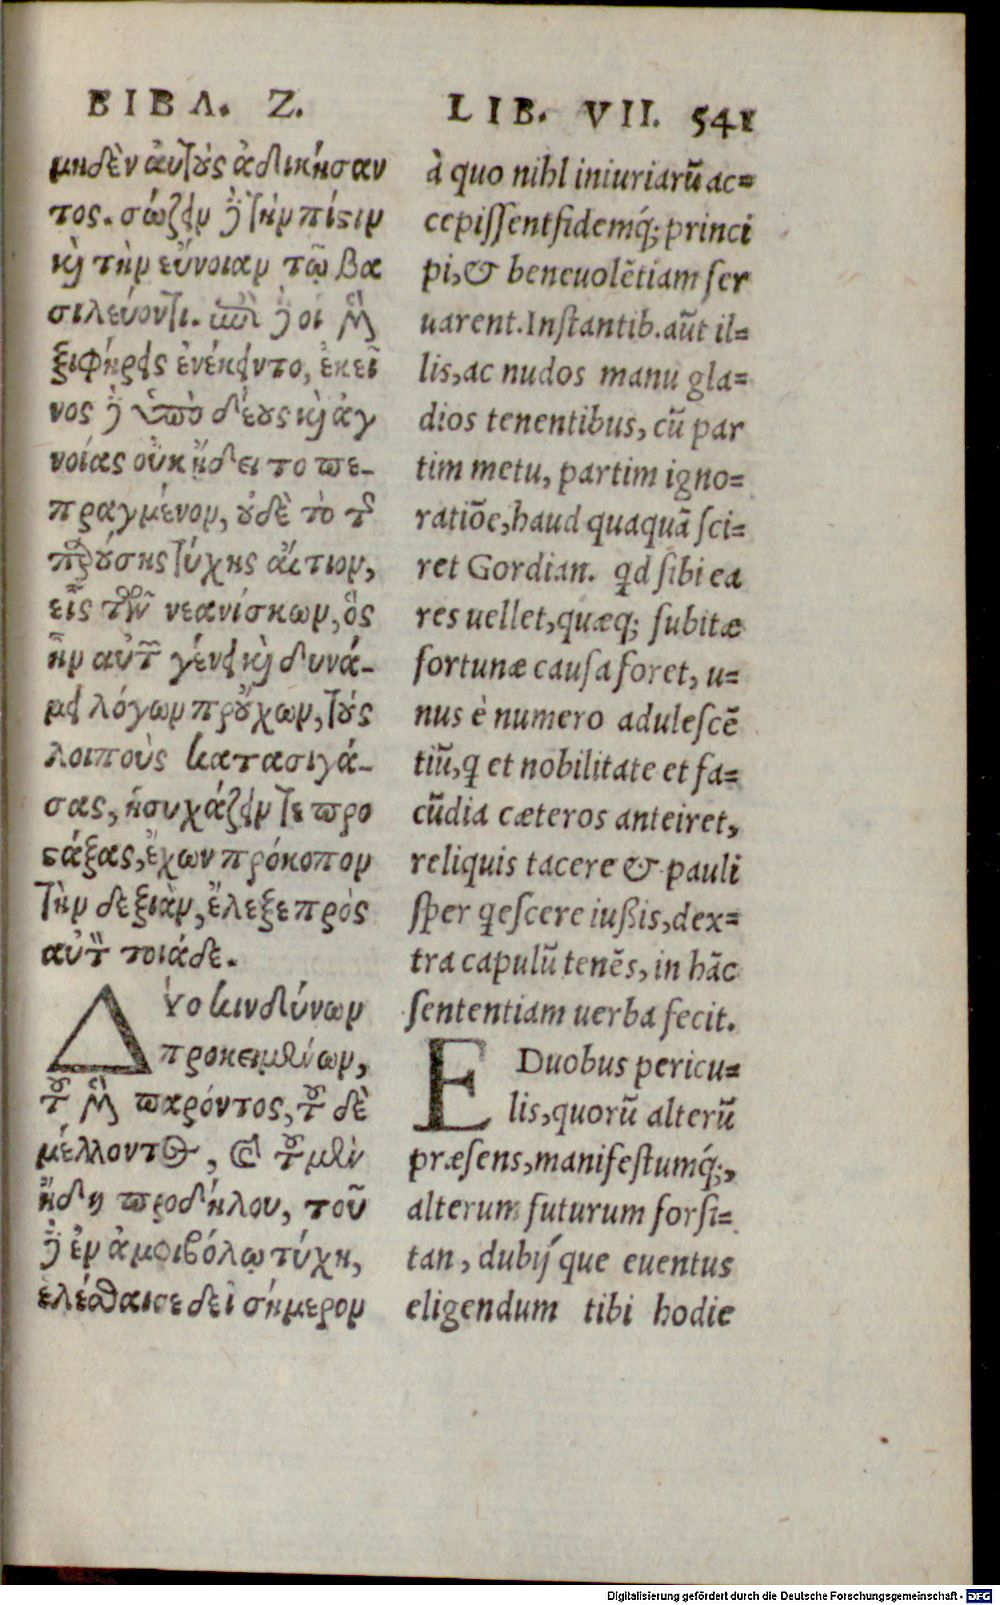 ΒΙΒΛ. Ζ.
μηδὲν αὐτοὺς ἀδικήσαν
τος. σώζειν δὲ τὴν πίστιν
καὶ τὴν εὔνοιαν τῷ βα
σιλεύοντι. ἐπεὶ δὲ οἱ μὲν
ξιφήρεις ἐνέκειντο, ἐκεῖ
νος δὲ ὑπὸ δέους καὶ ἀγ
νοίας οὐκ ᾔδει το πε-
πραγμένον, οὐδὲ τὸ τῆς
προούσης τύχης αἴτιον,
εἷς τῶν νεανίσκων, ὃς
ἦν αὐτῶν γένει καὶ δυνά-
μει λόγων προὔχων, τοὺς
λοιποὺς κατασιγά-
σας, ἡσυχάζειν τε προ
στάξας, ἔχων πρόκοπον
τὴν δεξιὰν, ἔλεξε πρὸς
αὐτὸν τοιάδε.
Δύο κινδύνων
προκειμένων,
τοῦ μὲν παρόντος, τοῦ δὲ
μέλλοντος, καὶ τοῦ μὲν
ἤδη προδήλου, τοῦ
δὲ ἐν ἀμφιβόλῳ τύχη,
ἑλέσθαι σε δεῖ σήμερον
LIB. VII. 541
à quo nihl iniuriarũ ac=
cepissent fidemq́; princi
pi, & beneuolẽtiam ser
uarent. Instantib. aũt il=
lis, ac nudos manu gla=
dios tenentibus, cũ par
tim metu, partim igno=
ratiõe, haud quaquã sci=
ret Gordian. qd sibi ea
res uellet, quæq; subitæ
fortunæ causa foret, u=
nus è numero adulescẽ
tiũ, q et nobilitate et fa=
cũdia cæteros anteiret,
reliquis tacere & pauli
sper qescere iußis, dex=
tra capulũ tenẽs, in hãc
sententiam uerba fecit.
E Duobus pericu=
lis, quorũ alterũ
præsens, manifestumq́;,
alterum futurum forsi=
tan, dubij́que euentus
eligendum tibi hodie
Digitalisierung gefördert durch die Deutsche Forschungsgemeinschaft - DFG